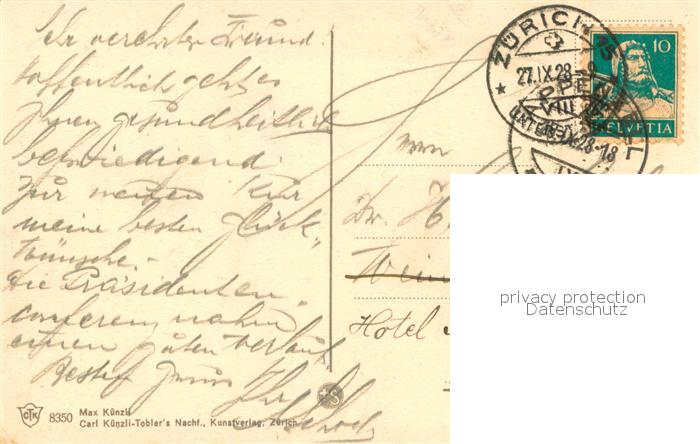 Ihr verehrter Freund.
Hoffentlich geht es
Ihnen gesundheitlich
befriedigend.
Zur neuen Kur
meine besten Glück-
wünsche.-
Die Präsidenten-
conferenz nahm
einen guten Verlauf
Besten Gruss
Ihr
ZÜRICH 15
27.IX.28
APPENZELL
10
HELVETIA
Herrn
Dr. H
Wein
Hotel
privacy protection
Datenschutz
CTK 8350 Max Künzli
Carl Künzli-Tobler's Nachf., Kunstverlag, Zürich